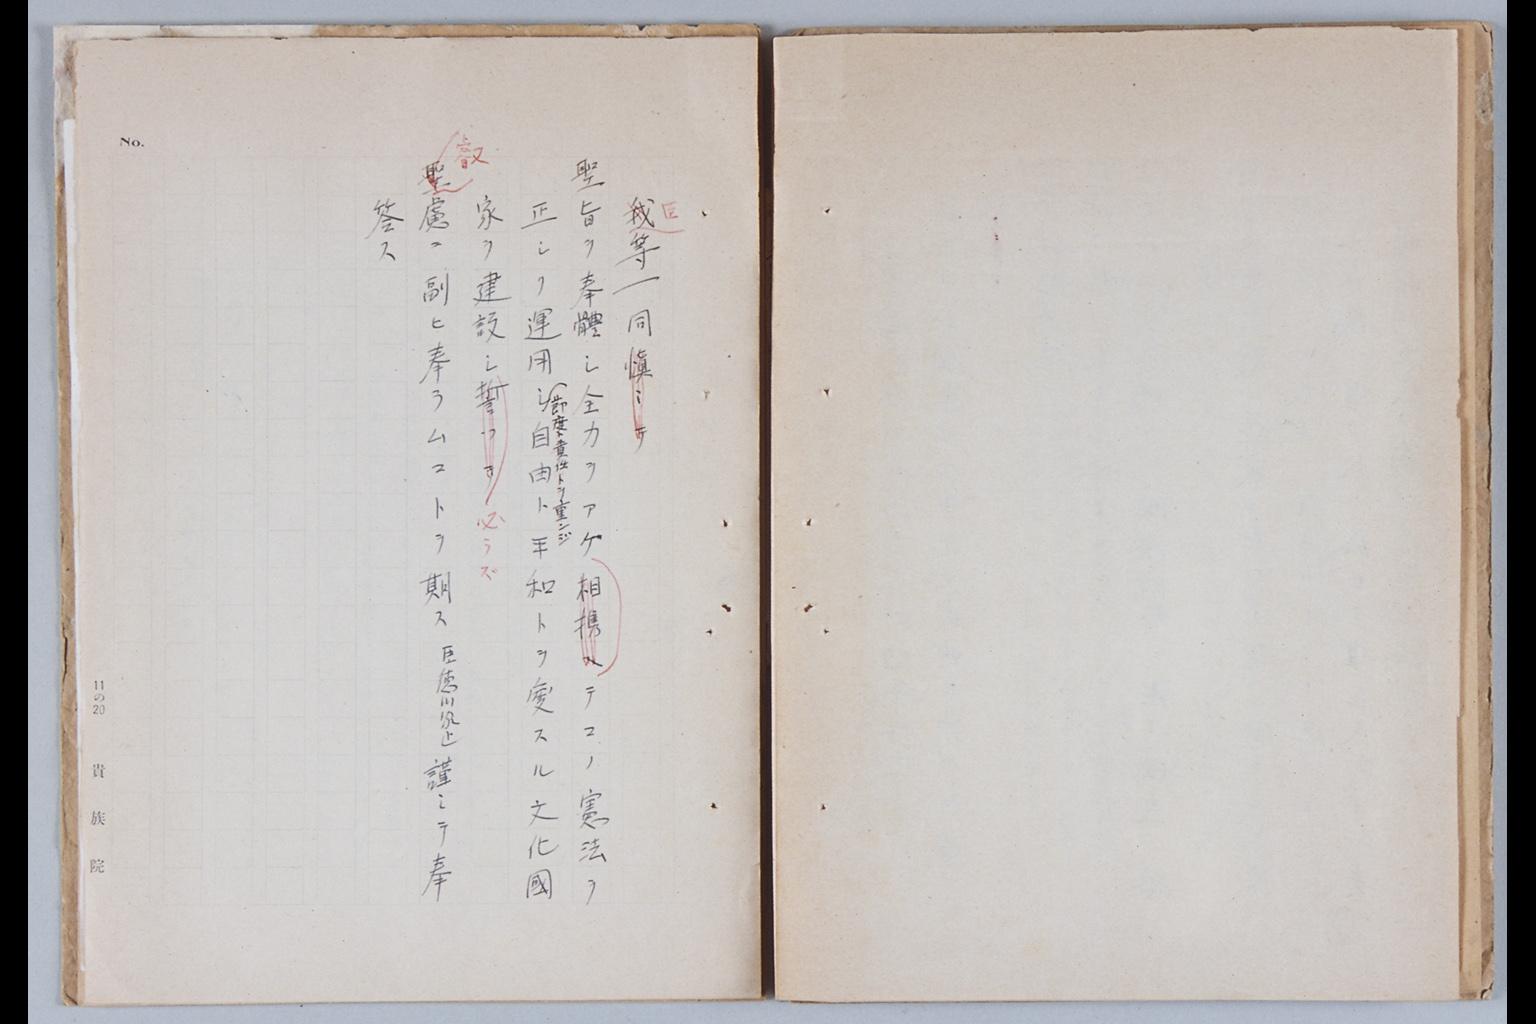 臣
我等一同愼ミテ
聖旨ヲ奉體シ全力ヲアゲ相携ヘテコノ憲法ヲ
正シク運用シ自由ト平和トヲ愛スル文化國
節度ト責任トヲ重ンジ
家ヲ建設シ誓つて
必ラズ
叡
聖慮ニ副ヒ奉ラムコトヲ期ス臣德川家正謹ミテ奉
答ス
No.
11の20 貴族院